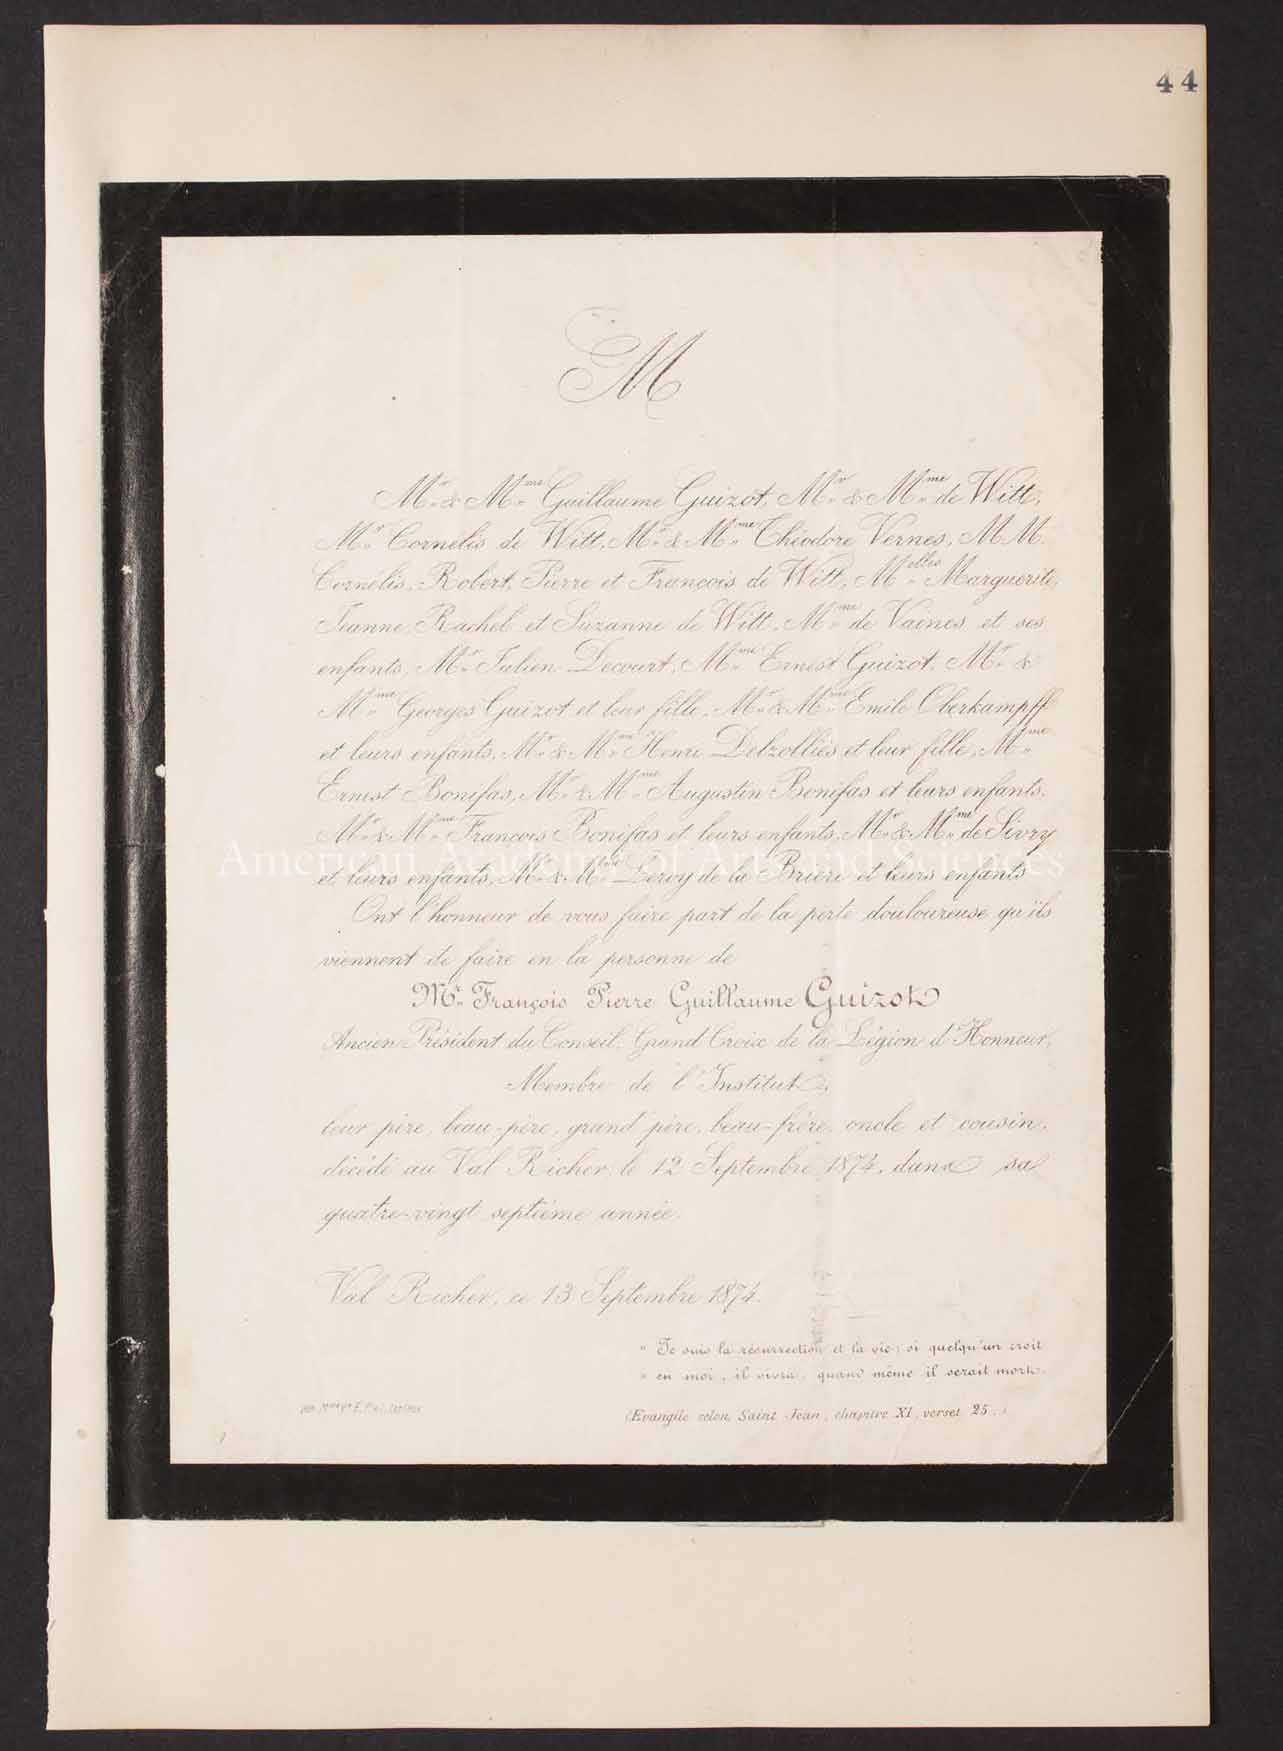 44
M
Mr. & Mme. Guillaume Guizot, Mr. & Mme. de Witt,
Mr. Cornelis de Witt, Mr. & Mme. Théodore Vernes, MM.
Cornélis, Robert, Pierre et François de Witt, Melles. Marguerite,
Jeanne, Rachel et Suzanne de Witt, Mme. de Vaines et ses
enfants, Mr. Julien Decourt, Mme. Ernest Guizot, Mr. &
Mme. Georges Guizot et leur fille, Mr. & Mme. Emile Oberkampff
et leurs enfants, Mr. & Mme. Henri Delzolliès et leur fille, Mme.
Ernest Bonifas, Mr. & Mme. Augustin Bonifas et leurs enfants,
Mr. & Mme. François Bonifas et leurs enfants, Mr. & Mme. de Sivry
American Academy of Arts and Sciences
et leurs enfants, Mr. & Mme. Leroy de la Brière et leurs enfants
Ont l'honneur de vous faire part de la perte douloureuse qu'ils
viennent de faire en la personne de
Mr. François Pierre Guillaume Guizot
Ancien Président du Conseil, Grand Croix de la Légion d'Honneur,
Membre de l'Institut,
leur père, beau-père, grand père, beau-frère, oncle et cousin,
décédé au Val Richer, le 12 Septembre 1874, dans sa
quatre-vingt septième année.
Val Richer, ce 13 Septembre 1874.
" Je suis la résurrection et la vie; si quelqu'un croit
" en moi, il vivra, quand même il serait mort.
(Evangile selon Saint Jean, chapitre XI, verset 25.)